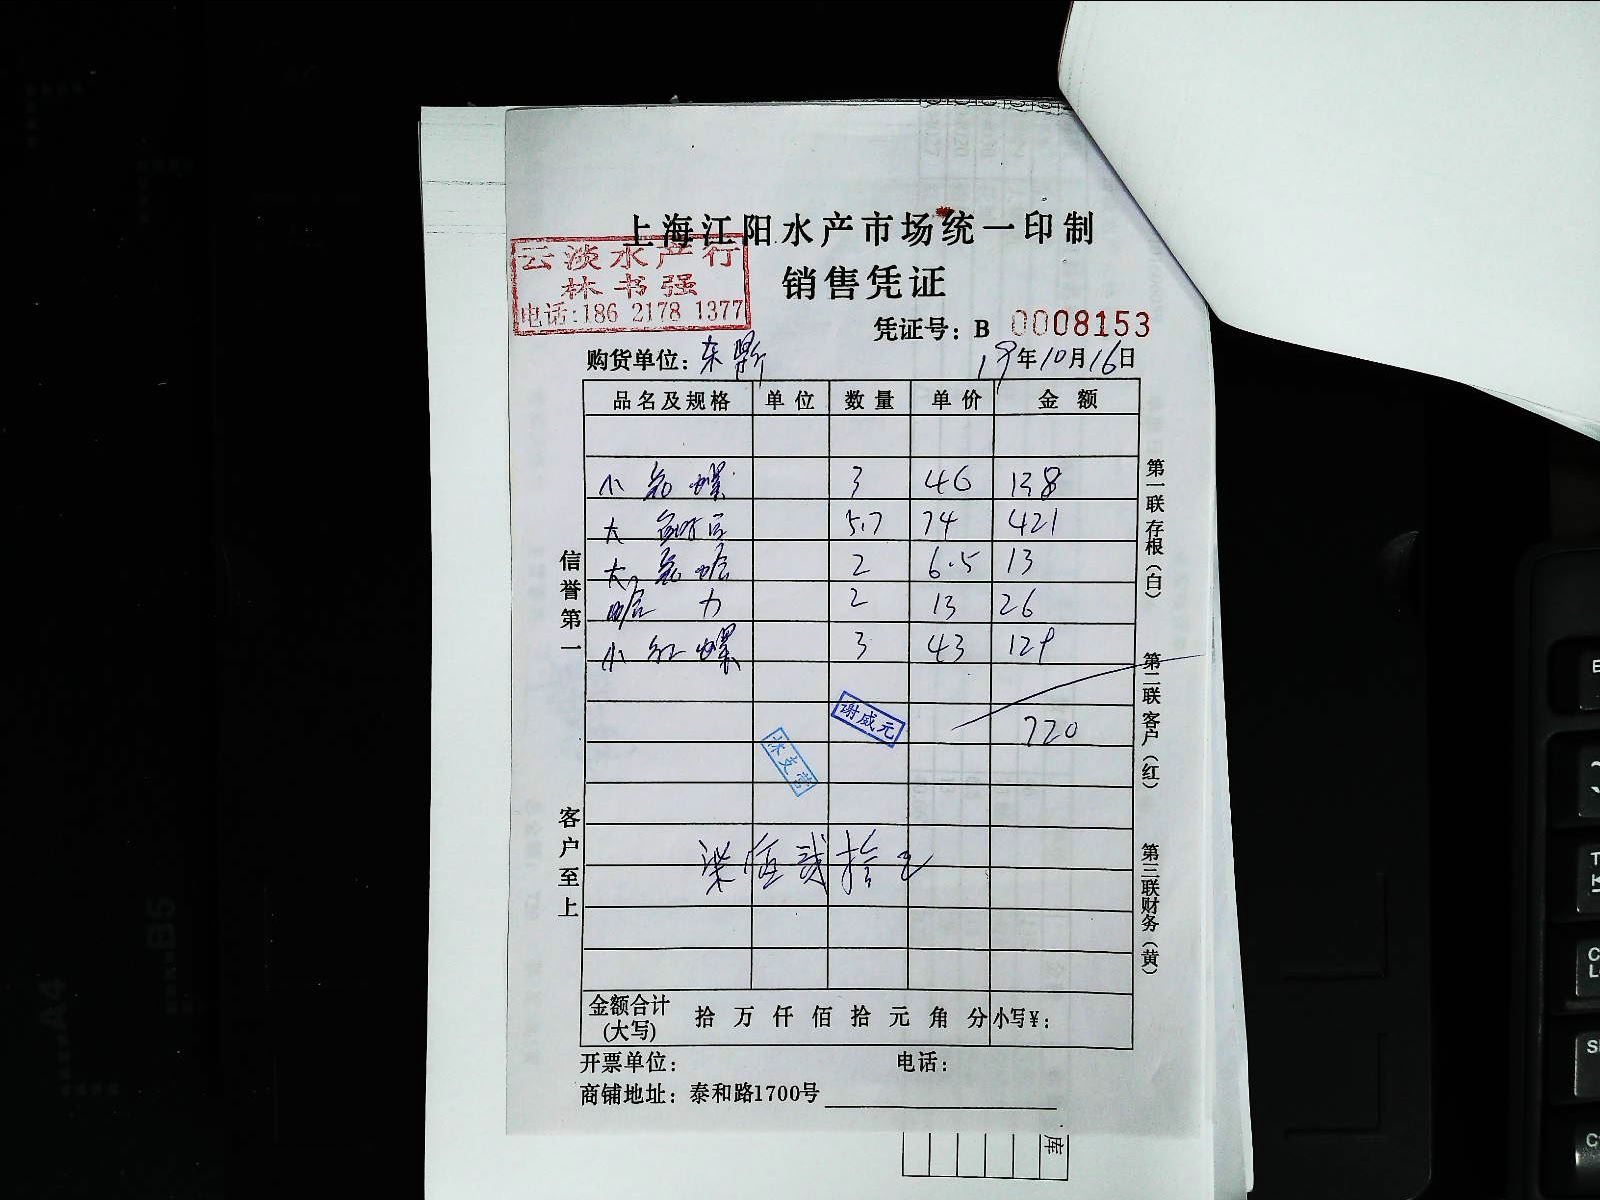 上海江阳水产市场统一印制
云淡水产行
林书强
电话:186 2178 1377
销售凭证
凭证号：B 0008153
购货单位：东
19年10月16日
品名及规格 单位 数量 单价 金额
小 螺 3 46 138
大 5.7 74 421
大 2 6.5 13
力 2 13 26
小红螺 3 43 129
谢威元
720
柒佰贰拾元
金额合计(大写) 拾 万 仟 佰 拾 元 角 分 小写￥：
开票单位： 电话：
商铺地址：泰和路1700号
信誉第一
客户至上
第一联存根（白）
第二联客户（红）
第三联财务（黄）
库
B5
A4